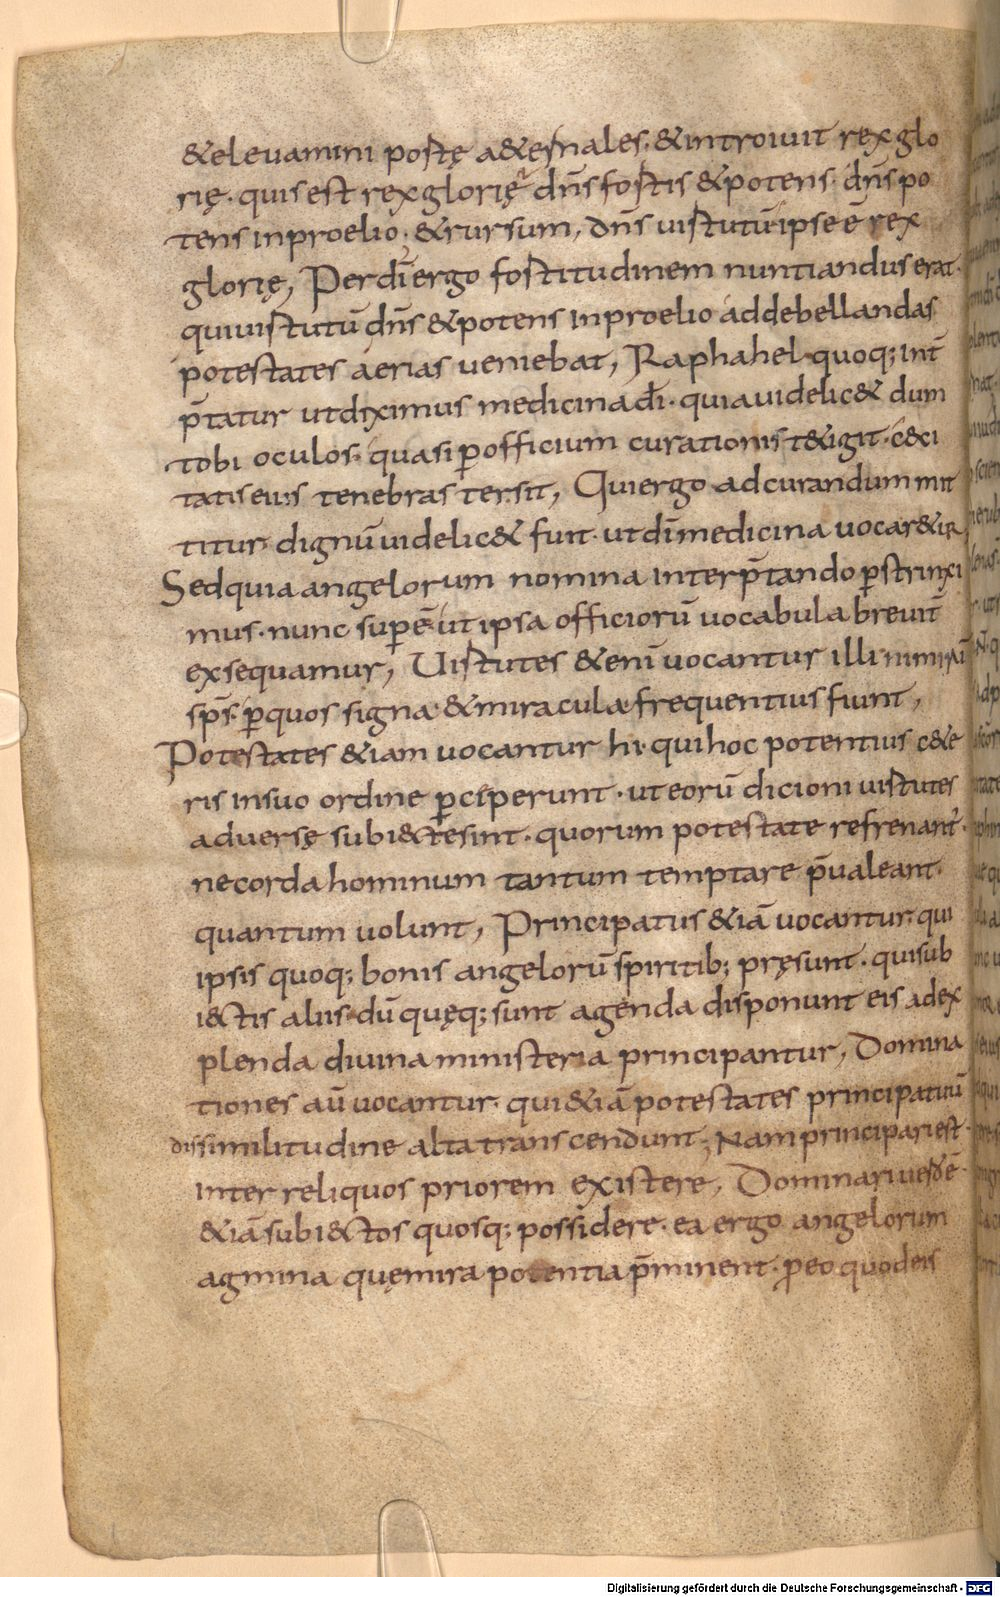 &eleuamini portę a&ernales· &introiuit rex glo
rię· quis est rex glorię dn̄s fortis &potens· dn̄s po
tens inproelio· &rursum, dn̄s uirtutū ipse ē rex
glorię, Perdī ergo fortitudinem nuntiandus erat·
quiuirtutū dn̄s &potens inproelio addebellandas
potestates aerias ueniebat, Raphahel quoq; int̄
p̄tatur utdiximus medicina dī· quia uidelic& dum
tobi oculos· quasi ꝑofficium curationis t&igit· c&ci
tatis eius tenebras tersit, Quiergo adcurandum mit
titur dignū uidelic& fuit· utdī medicina uocar&ur
Sedquia angelorum nomina interp̄tando ꝑstrinxi
mus· nunc suꝑē· ut ipsa officiorū uocabula breuit̄
exsequamur, Uirtutes &enī uocantur illi nimirū
sp̄s· ꝑquos signa &miracula frequentius fiunt,
Potestates &iam uocantur hi· qui hoc potentius c&e
ris insuo ordine ꝑciperunt· ut eorū dicioni uirtutes
aduersę subi&tesint· quorum potestate refrenant̄·
necorda hominum tantum temptare p̄ualeant·
quantum uolunt, Principatus &iā uocantur· qui
ipsis quoq; bonis angelorū spiritib; pręsunt· quisub
i&tis aliis· dū quęq; sunt agenda disponunt eis adex
plenda diuina ministeria principantur, Domina
tiones aū uocantur· qui &iā potestates principatuū
dissimilitudine alta transcendunt; Nam principari est·
inter reliquos priorem existere, Dominari uero ē·
&iā subi&tos quosq; possidere· ea ergo angelorum
agmina quęmira potentia p̄minent· ꝓeo quodeis
Digitalisierung gefördert durch die Deutsche Forschungsgemeinschaft - DFG